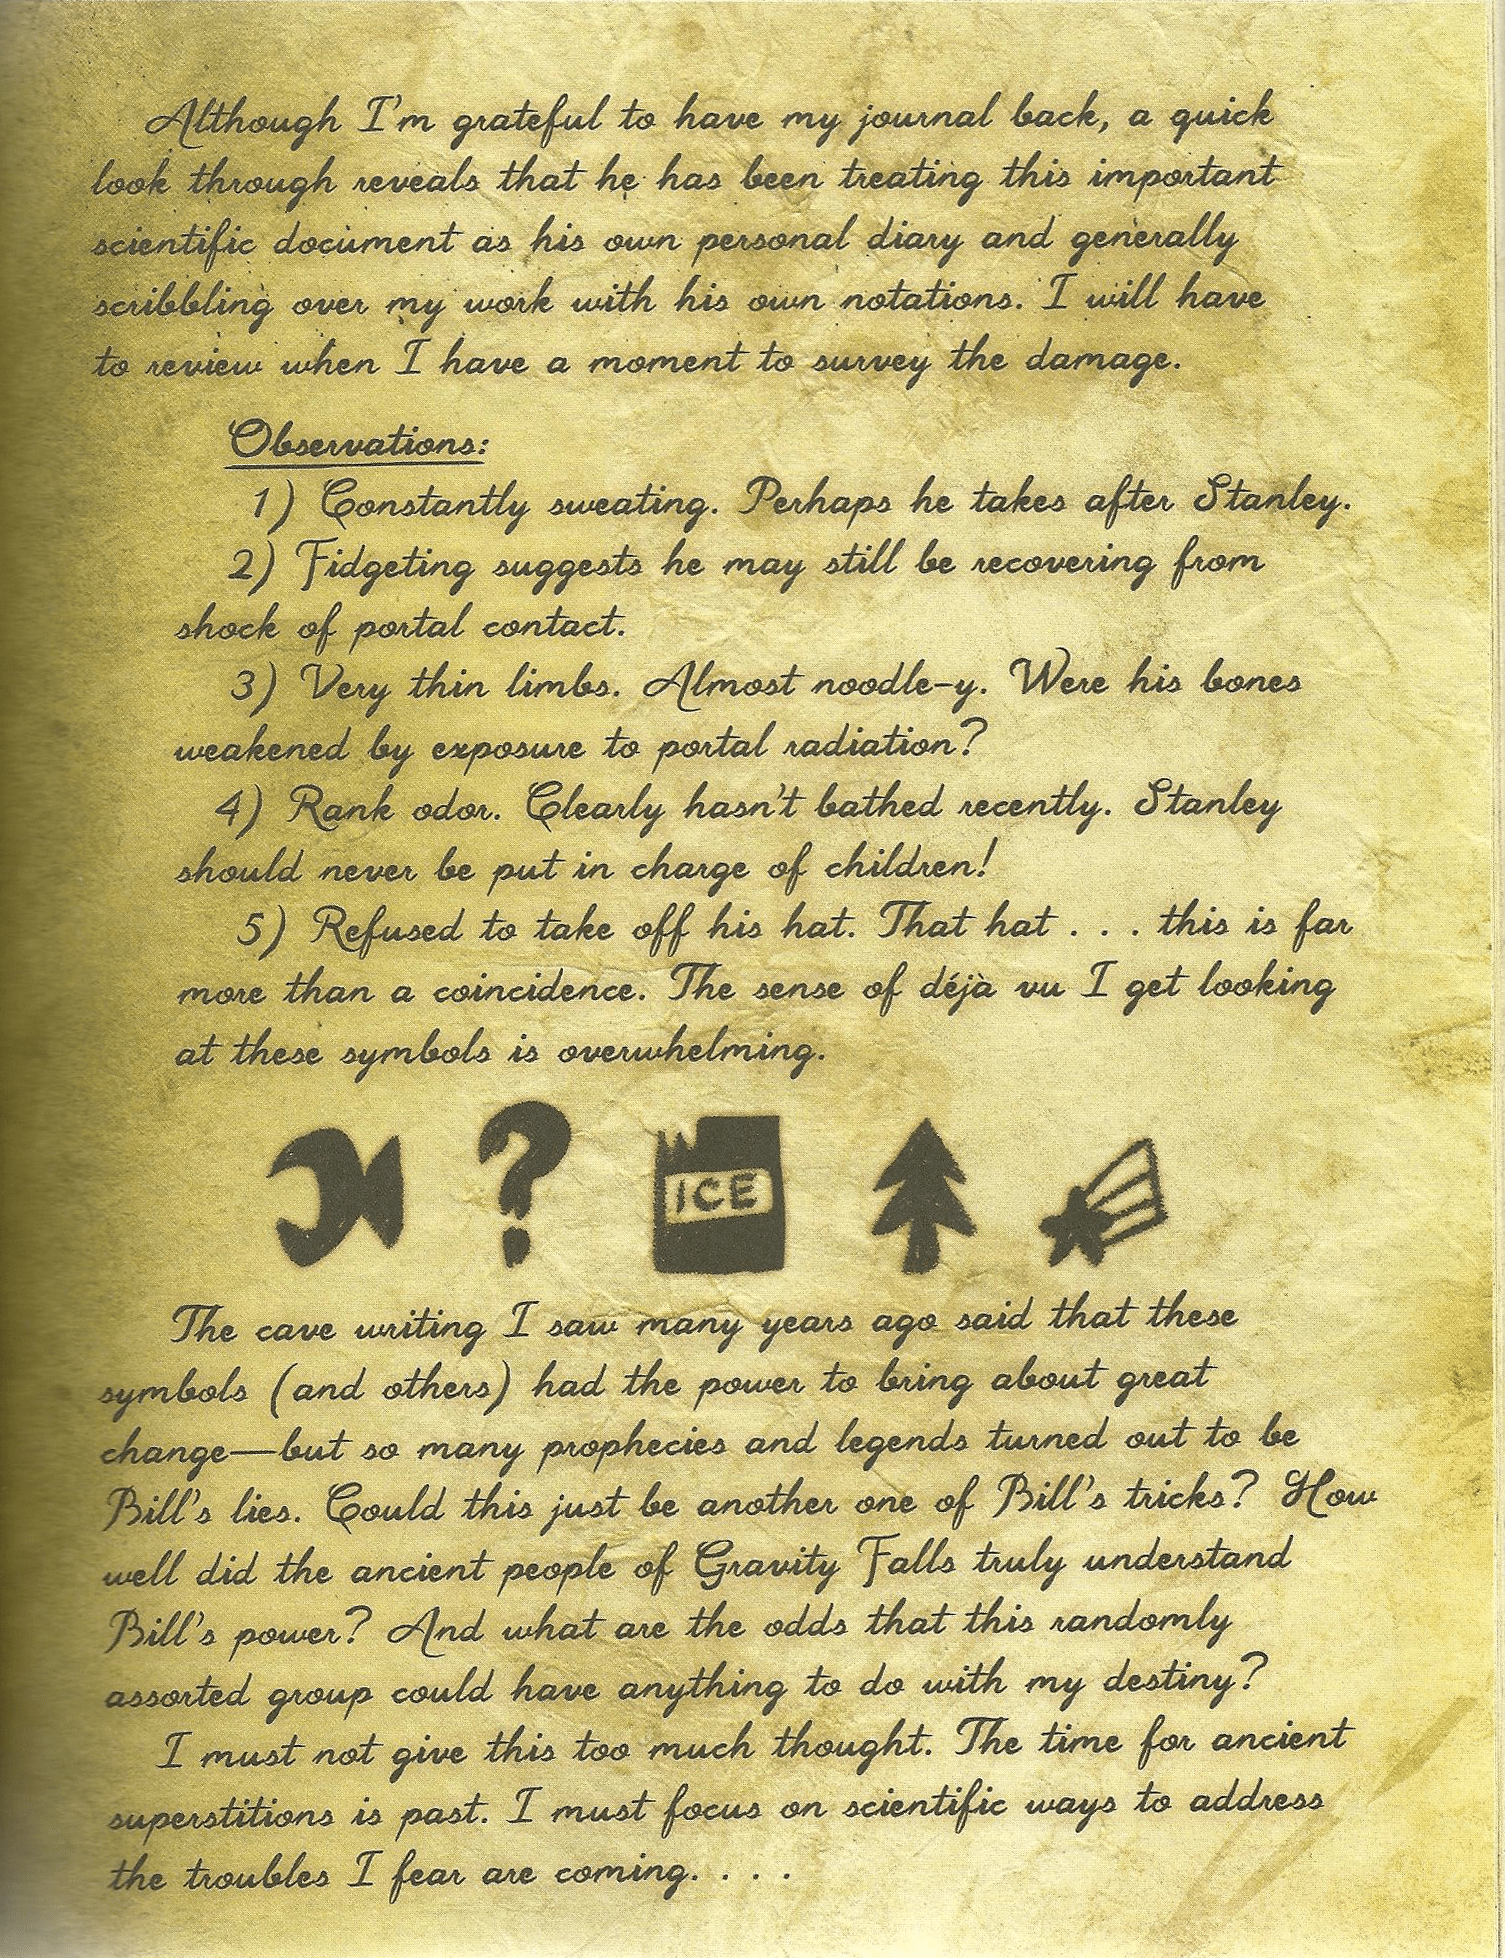 Although I'm grateful to have my journal back, a quick
look through reveals that he has been treating this important
scientific document as his own personal diary and generally
scribbling over my work with his own notations. I will have
to review when I have a moment to survey the damage.
Observations:
1) Constantly sweating. Perhaps he takes after Stanley.
2) Fidgeting suggests he may still be recovering from
shock of portal contact.
3) Very thin limbs. Almost noodle-y. Were his bones
weakened by exposure to portal radiation?
4) Rank odor. Clearly hasn't bathed recently. Stanley
should never be put in charge of children!
5) Refused to take off his hat. That hat . . . this is far
more than a coincidence. The sense of déjà vu I get looking
at these symbols is overwhelming.
? ICE
The cave writing I saw many years ago said that these
symbols (and others) had the power to bring about great
change—but so many prophecies and legends turned out to be
Bill's lies. Could this just be another one of Bill's tricks? How
well did the ancient people of Gravity Falls truly understand
Bill's power? And what are the odds that this randomly
assorted group could have anything to do with my destiny?
I must not give this too much thought. The time for ancient
superstitions is past. I must focus on scientific ways to address
the troubles I fear are coming. . . .